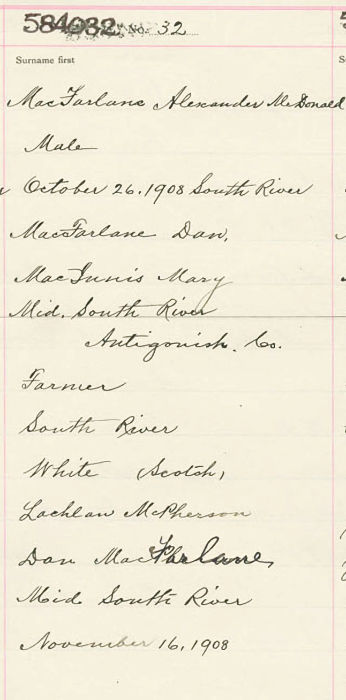 584032 No. 32
Surname first
MacFarlane Alexander McDonald
Male
October 26, 1908 South River
MacFarlane Dan,
MacInnis Mary
Mid. South River
Antigonish. Co.
Farmer
South River
White (Scotch)
Lachlan McPherson
Dan MacFarlane
Mid South River
November 16, 1908